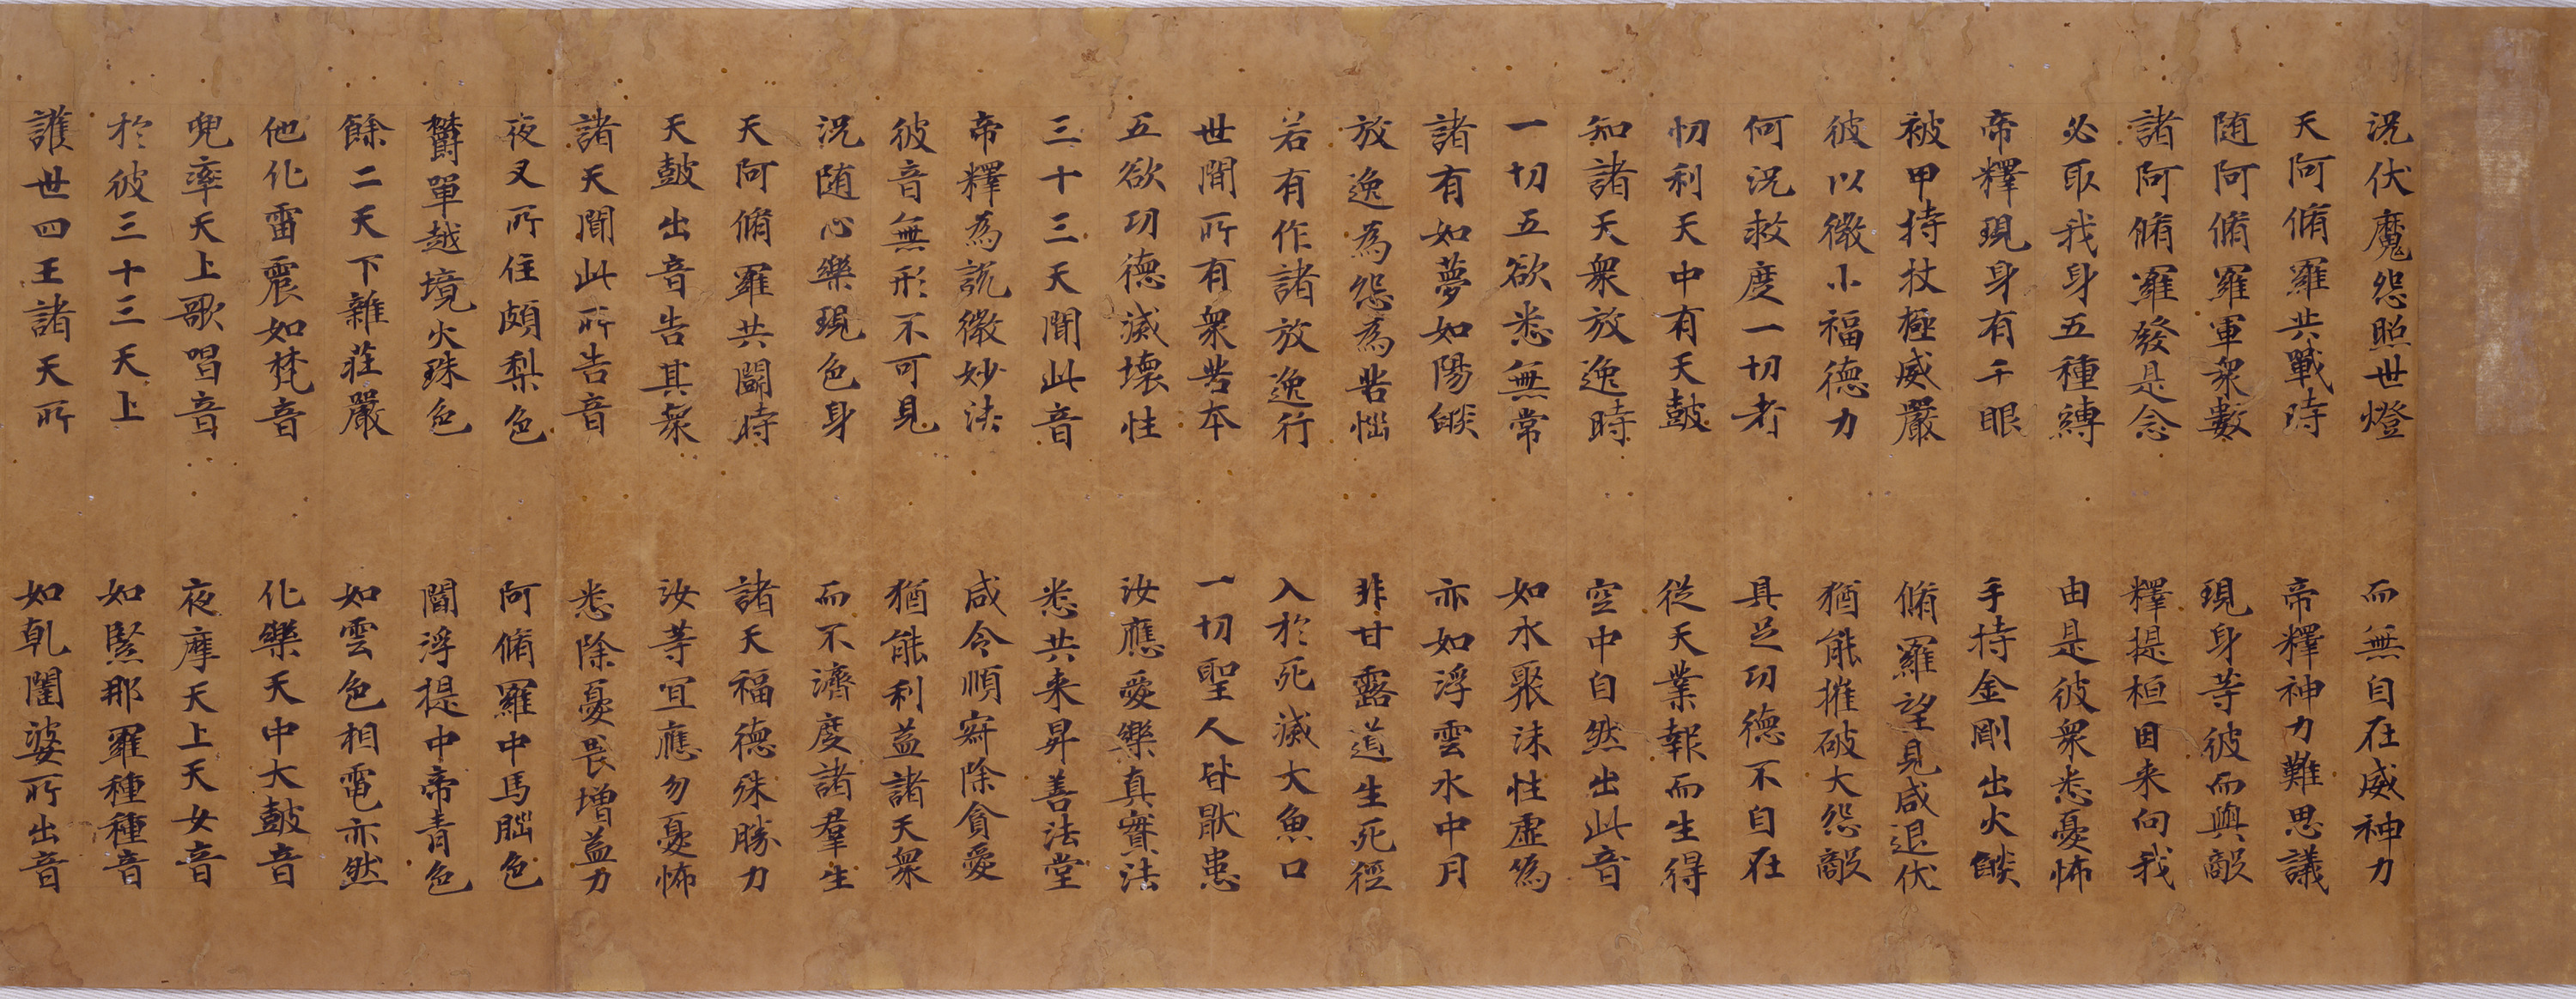 況伏魔怨照世燈　而無自在威神力
天阿脩羅共戰時　帝釋神力難思議
随阿脩羅軍衆數　現身等彼而與敵
諸阿脩羅發是念　釋提桓因来向我
必取我身五種縛　由是彼衆悉憂怖
帝釋現身有千眼　手持金剛出火燄
被甲持杖極威嚴　脩羅望見咸退伏
彼以微小福德力　猶能摧破大怨敵
何況救度一切者　具足功德不自在
忉利天中有天鼓　從天業報而生得
知諸天衆放逸時　空中自然出此音
一切五欲悉無常　如水聚沫性虛偽
諸有如夢如陽燄　亦如浮雲水中月
放逸為怨為苦惱　非甘露道生死徑
若有作諸放逸行　入於死滅大魚口
世間所有衆苦本　一切聖人皆猒患
五欲功德滅壞性　汝應愛樂真實法
三十三天聞此音　悉共来昇善法堂
帝釋為說微妙法　咸令順寂除貪愛
彼音無形不可見　猶能利益諸天衆
況随心樂現色身　而不濟度諸羣生
天阿脩羅共鬪時　諸天福德殊勝力
天鼓出音告其衆　汝等宜應勿憂怖
諸天聞此所告音　悉除憂畏增益力
夜叉所住頗梨色　阿脩羅中馬腦色
欝單越境火珠色　閻浮提中帝青色
餘二天下雜莊嚴　如雲色相電亦然
他化雷震如梵音　化樂天中大鼓音
兜率天上歌唱音　夜摩天上天女音
於彼三十三天上　如緊那羅種種音
護世四王諸天所　如乹闥婆所出音